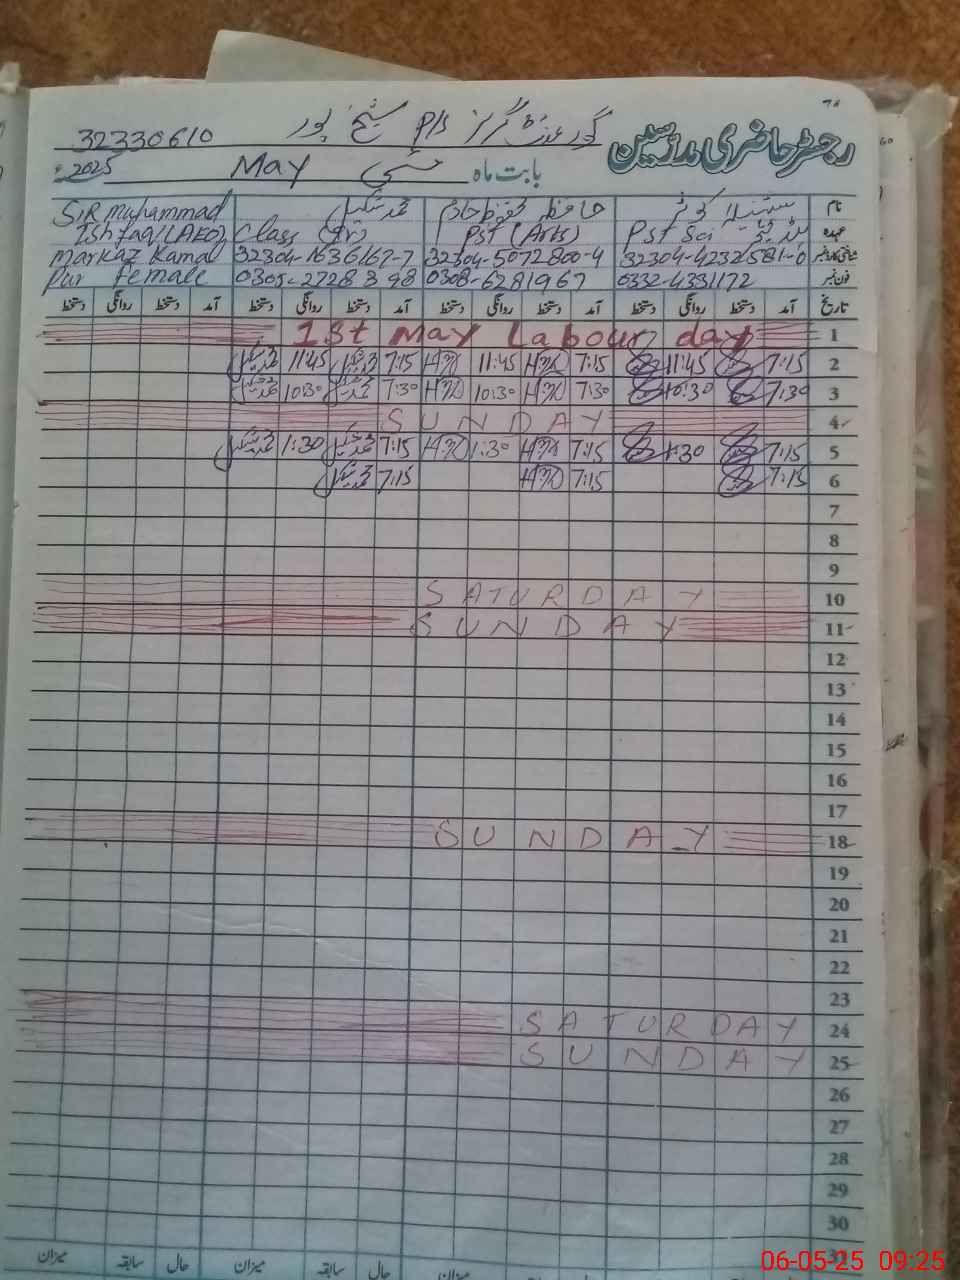 رجسٹر حاضری مدرسین
گورنمنٹ گرلز P/S شیخ پور 32330610
بابت ماہ مئی May 2025
نام
محمد شکیل
SIR Muhammad
عہدہ
PST Sci
PST (Arts)
Class (iv)
Ishfaq (AEO)
32304-4232581-0
32304-5072800-4
32304-1636167-7
Markaz Kamal
فون نمبر
0332-4331172
0308-6281967
0305-2728398
Pur Female
تاریخ آمد دستخط روانگی دستخط آمد دستخط روانگی دستخط آمد دستخط روانگی دستخط آمد دستخط روانگی دستخط
1 1st May Labour day
2 7:15 11:45 7:15 11:45 7:15 11:45
3 7:30 10:30 7:30 10:30 7:30 10:30
4 SUNDAY
5 7:15 1:30 7:15 1:30 7:15 1:30
6 7:15 7:15 7:15
7
8
9
10 SATURDAY
11 SUNDAY
12
13
14
15
16
17
18 SUNDAY
19
20
21
22
23
24 SATURDAY
25 SUNDAY
26
27
28
29
30
31
میزان حال سابقہ میزان حال سابقہ میزان
06-05-25 09:25